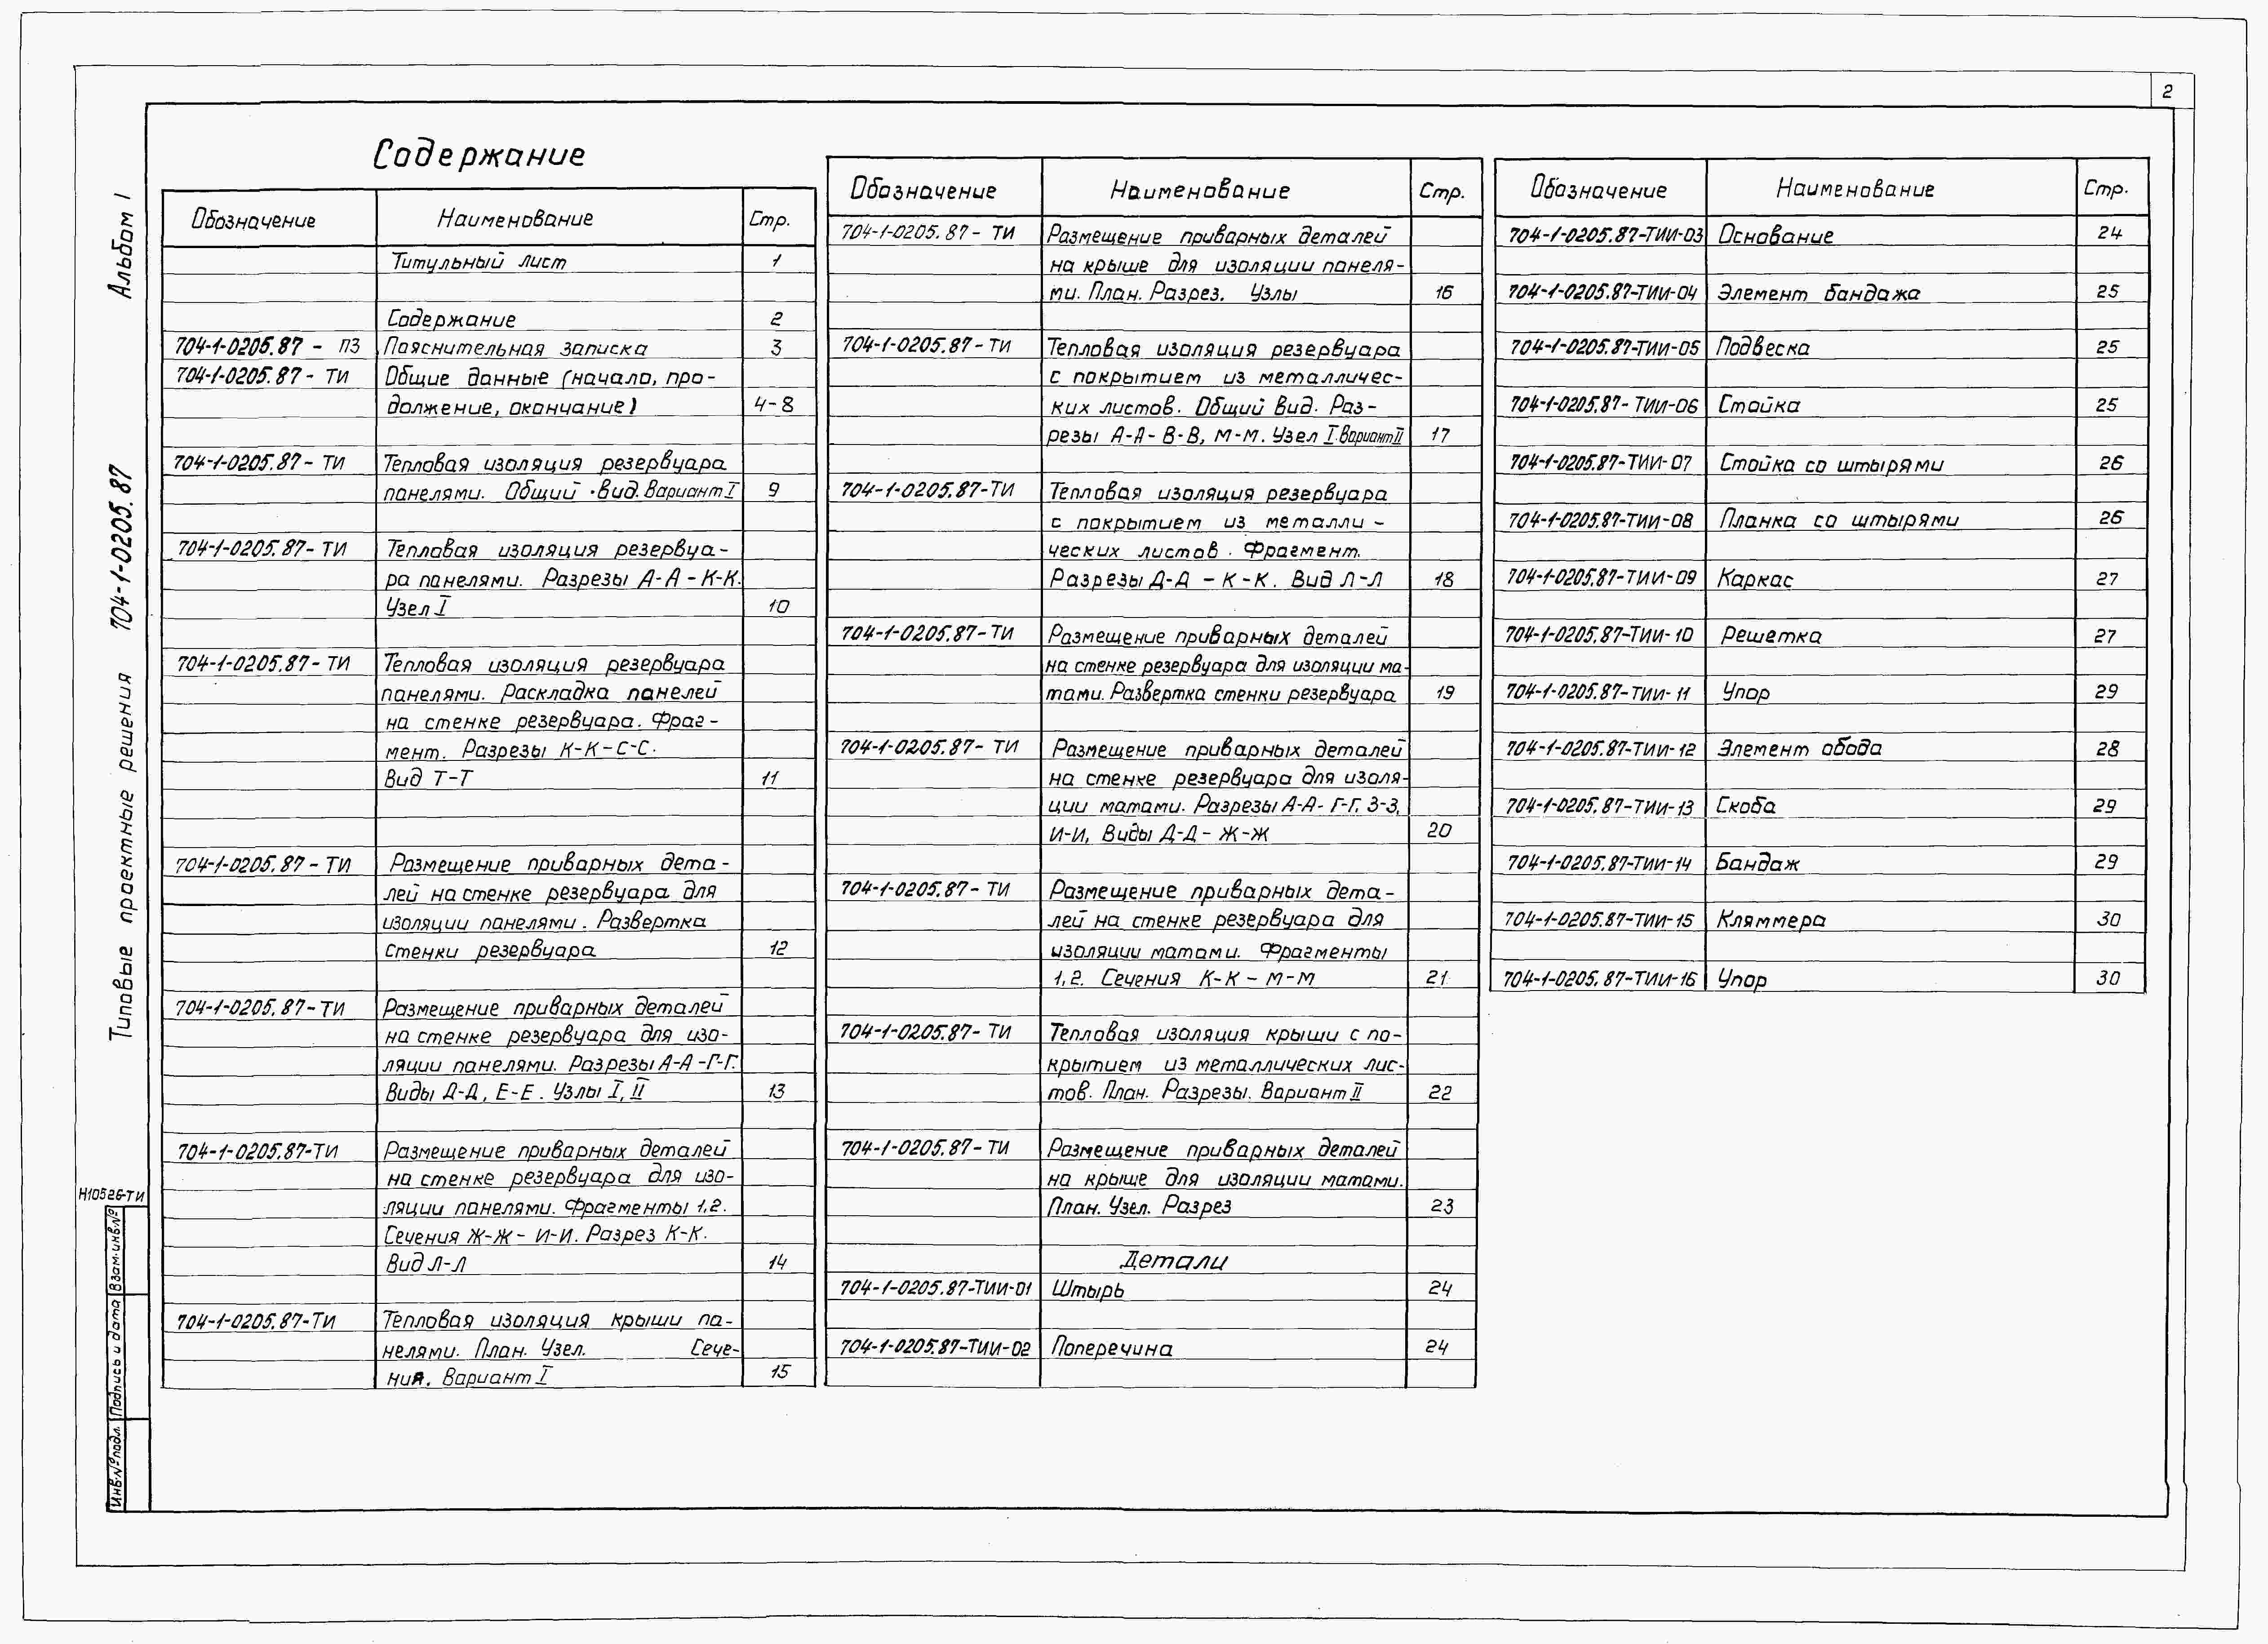 2
Содержание
Обозначение Наименование Стр.
Титульный лист 1
Содержание 2
704-1-0205.87 - ПЗ Пояснительная записка 3
704-1-0205.87 - ТИ Общие данные (начало, про-
должение, окончание) 4-8
704-1-0205.87 - ТИ Тепловая изоляция резервуара
панелями. Общий вид. Вариант I 9
704-1-0205.87- ТИ Тепловая изоляция резервуа-
ра панелями. Разрезы А-А - К-К.
Узел I 10
704-1-0205.87- ТИ Тепловая изоляция резервуара
панелями. Раскладка панелей
на стенке резервуара. Фраг-
мент. Разрезы К-К-С-С.
Вид Т-Т 11
704-1-0205.87 - ТИ Размещение приварных дета-
лей на стенке резервуара для
изоляции панелями. Развертка
стенки резервуара 12
704-1-0205.87- ТИ Размещение приварных деталей
на стенке резервуара для изо-
ляции панелями. Разрезы А-А-Г-Г.
Виды Д-Д, Е-Е. Узлы I, II 13
704-1-0205.87-ТИ Размещение приварных деталей
на стенке резервуара для изо-
ляции панелями. Фрагменты 1,2.
Сечения Ж-Ж- И-И. Разрез К-К.
Вид Л-Л 14
704-1-0205.87-ТИ Тепловая изоляция крыши па-
нелями. План. Узел. Сече-
ния. Вариант I 15
Обозначение Наименование Стр.
704-1-0205.87- ТИ Размещение приварных деталей
на крыше для изоляции панеля-
ми. План. Разрез. Узлы 16
704-1-0205.87- ТИ Тепловая изоляция резервуара
с покрытием из металличес-
ких листов. Общий вид. Раз-
резы А-А- В-В, М-М. Узел I. Вариант II 17
704-1-0205.87-ТИ Тепловая изоляция резервуара
с покрытием из металли -
ческих листов. Фрагмент.
Разрезы Д-Д - К-К. Вид Л-Л 18
704-1-0205.87- ТИ Размещение приварных деталей
на стенке резервуара для изоляции ма-
тами. Развертка стенки резервуара 19
704-1-0205.87- ТИ Размещение приварных деталей
на стенке резервуара для изоля-
ции матами. Разрезы А-А- Г-Г, З-З,
И-И, Виды Д-Д - Ж-Ж 20
704-1-0205.87- ТИ Размещение приварных дета-
лей на стенке резервуара для
изоляции матами. Фрагменты
1,2. Сечения К-К - М-М 21
704-1-0205.87- ТИ Тепловая изоляция крыши с по-
крытием из металлических лис-
тов. План. Разрезы. Вариант II 22
704-1-0205.87- ТИ Размещение приварных деталей
на крыше для изоляции матами.
План. Узел. Разрез 23
Детали
704-1-0205.87-ТИИ-01 Штырь 24
704-1-0205.87-ТИИ-02 Поперечина 24
Обозначение Наименование Стр.
704-1-0205.87-ТИИ-03 Основание 24
704-1-0205.87-ТИИ-04 Элемент бандажа 25
704-1-0205.87-ТИИ-05 Подвеска 25
704-1-0205.87-ТИИ-06 Стойка 25
704-1-0205.87-ТИИ-07 Стойка со штырями 26
704-1-0205.87-ТИИ-08 Планка со штырями 26
704-1-0205.87-ТИИ-09 Каркас 27
704-1-0205.87-ТИИ-10 Решетка 27
704-1-0205.87-ТИИ-11 Упор 29
704-1-0205.87-ТИИ-12 Элемент обода 28
704-1-0205.87-ТИИ-13 Скоба 29
704-1-0205.87-ТИИ-14 Бандаж 29
704-1-0205.87-ТИИ-15 Кляммера 30
704-1-0205.87-ТИИ-16 Упор 30
Типовые проектные решения 704-1-0205.87 Альбом 1
Н10526-ТИ
Инв.№подл. Подпись и дата Взам.инв.№